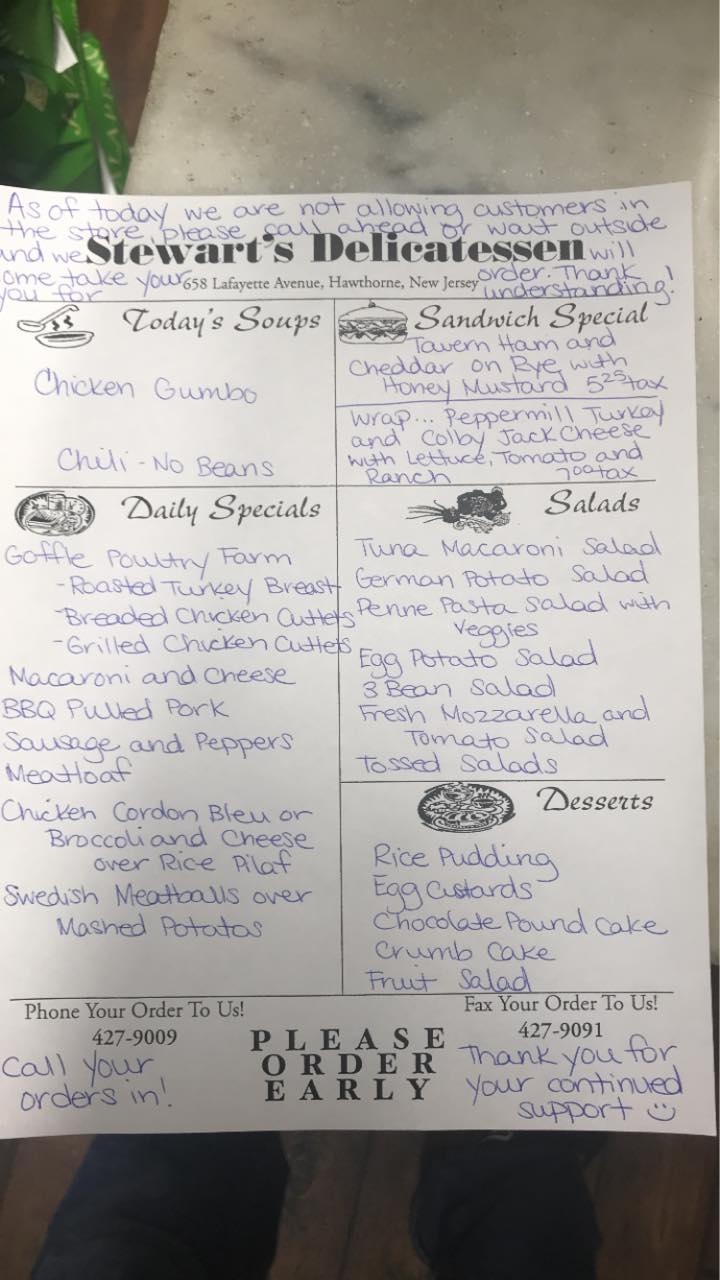 As of today we are not allowing customers in
the store, please call ahead or wait outside
and we will
Stewart's Delicatessen
come take your order. Thank
658 Lafayette Avenue, Hawthorne, New Jersey
you for understanding!
Today's Soups
Chicken Gumbo
Chili - No Beans
Sandwich Special
Tavern Ham and
Cheddar on Rye with
Honey Mustard 5.25 + tax
Wrap... Peppermill Turkey
and Colby Jack Cheese
with Lettuce, Tomato and
Ranch 7.00 + tax
Daily Specials
Goffle Poultry Farm
- Roasted Turkey Breast
- Breaded Chicken Cutlets
- Grilled Chicken Cutlets
Macaroni and Cheese
BBQ Pulled Pork
Sausage and Peppers
Meatloaf
Chicken Cordon Bleu or
Broccoli and Cheese
over Rice Pilaf
Swedish Meatballs over
Mashed Potatos
Salads
Tuna Macaroni Salad
German Potato Salad
Penne Pasta Salad with
Veggies
Egg Potato Salad
3 Bean Salad
Fresh Mozzarella and
Tomato Salad
Tossed Salads
Desserts
Rice Pudding
Egg Custards
Chocolate Pound Cake
Crumb Cake
Fruit Salad
Phone Your Order To Us!
427-9009
Call your
orders in!
PLEASE
ORDER
EARLY
Fax Your Order To Us!
427-9091
Thank you for
your continued
support